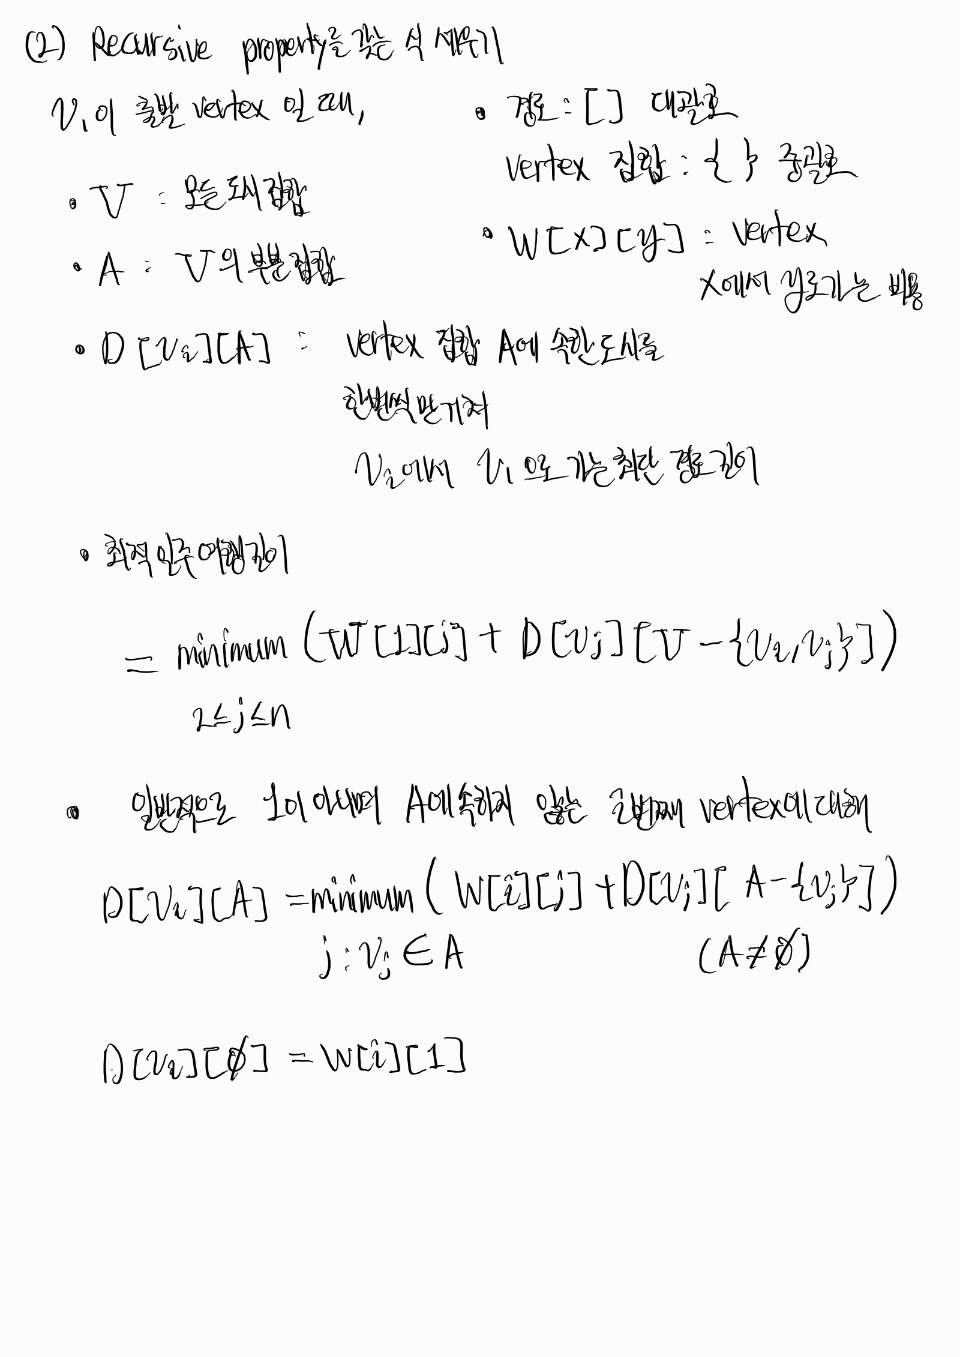 (2) Recursive property를 갖는 식 세우기
v₁이 출발 vertex 일 때,
• V : 모든 도시 집합
• A : V의 부분집합
• 경로 : [ ] 대괄호
vertex 집합 : { } 중괄호
• W[x][y] : vertex
x에서 y로가는 비용
• D[vᵢ][A] : vertex 집합 A에 속한 도시를
한번씩만 거쳐
vᵢ에서 v₁으로 가는 최단 경로 길이
• 최적 일주여행길이
= minimum (W[1][j] + D[vⱼ][V-{vᵢ,vⱼ}])
2≤j≤n
• 일반적으로 1이 아니며 A에 속하지 않는 i번째 vertex에 대해
D[vᵢ][A] = minimum (W[i][j] + D[vⱼ][A-{vⱼ}])
j : vⱼ ∈ A (A≠∅)
D[vᵢ][∅] = W[i][1]